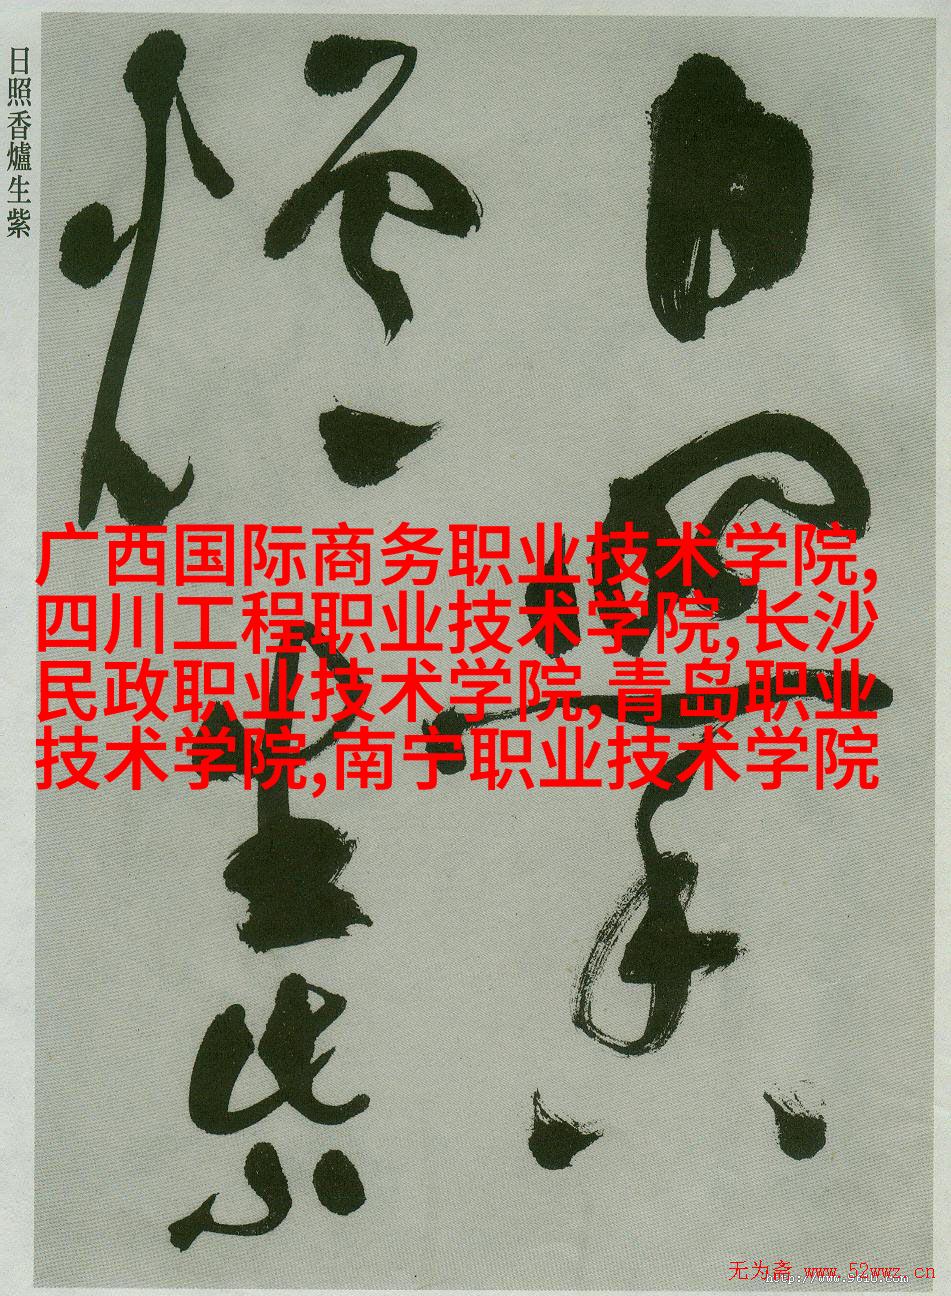 日照香爐生紫
日照香
爐生紫
广西国际商务职业技术学院,
四川工程职业技术学院,长沙
民政职业技术学院,青岛职业
技术学院,南宁职业技术学院
无为斋 www.52wwz.cn
http://www.9610.com